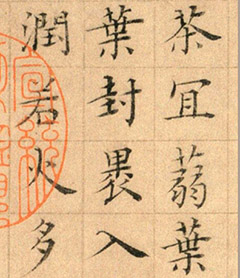 茶宜蒻葉
葉封裹入
潤若火多